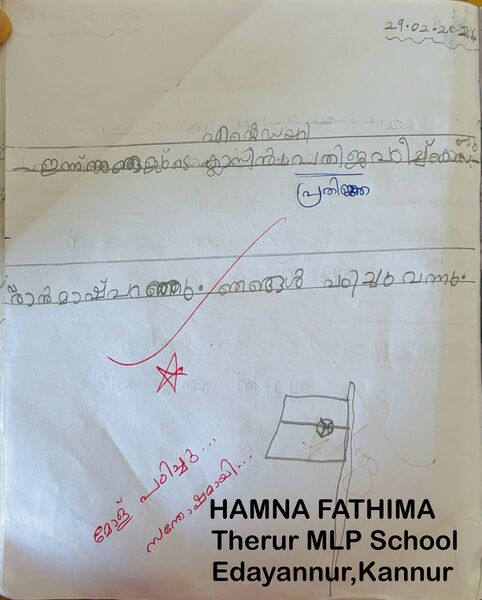 29.02.2024
എൻ്റെ ഡയറി
ഇന്ന് ഞങ്ങളുടെ ക്ലാസിൽ പ്രതിജ്ഞ
പ്രതിജ്ഞ
മാഷ് പറഞ്ഞു. ഞങ്ങൾ പഠിച്ചു വന്നു.
മോള് പഠിച്ചു...
സന്തോഷമായി...
HAMNA FATHIMA
Therur MLP School
Edayannur,Kannur